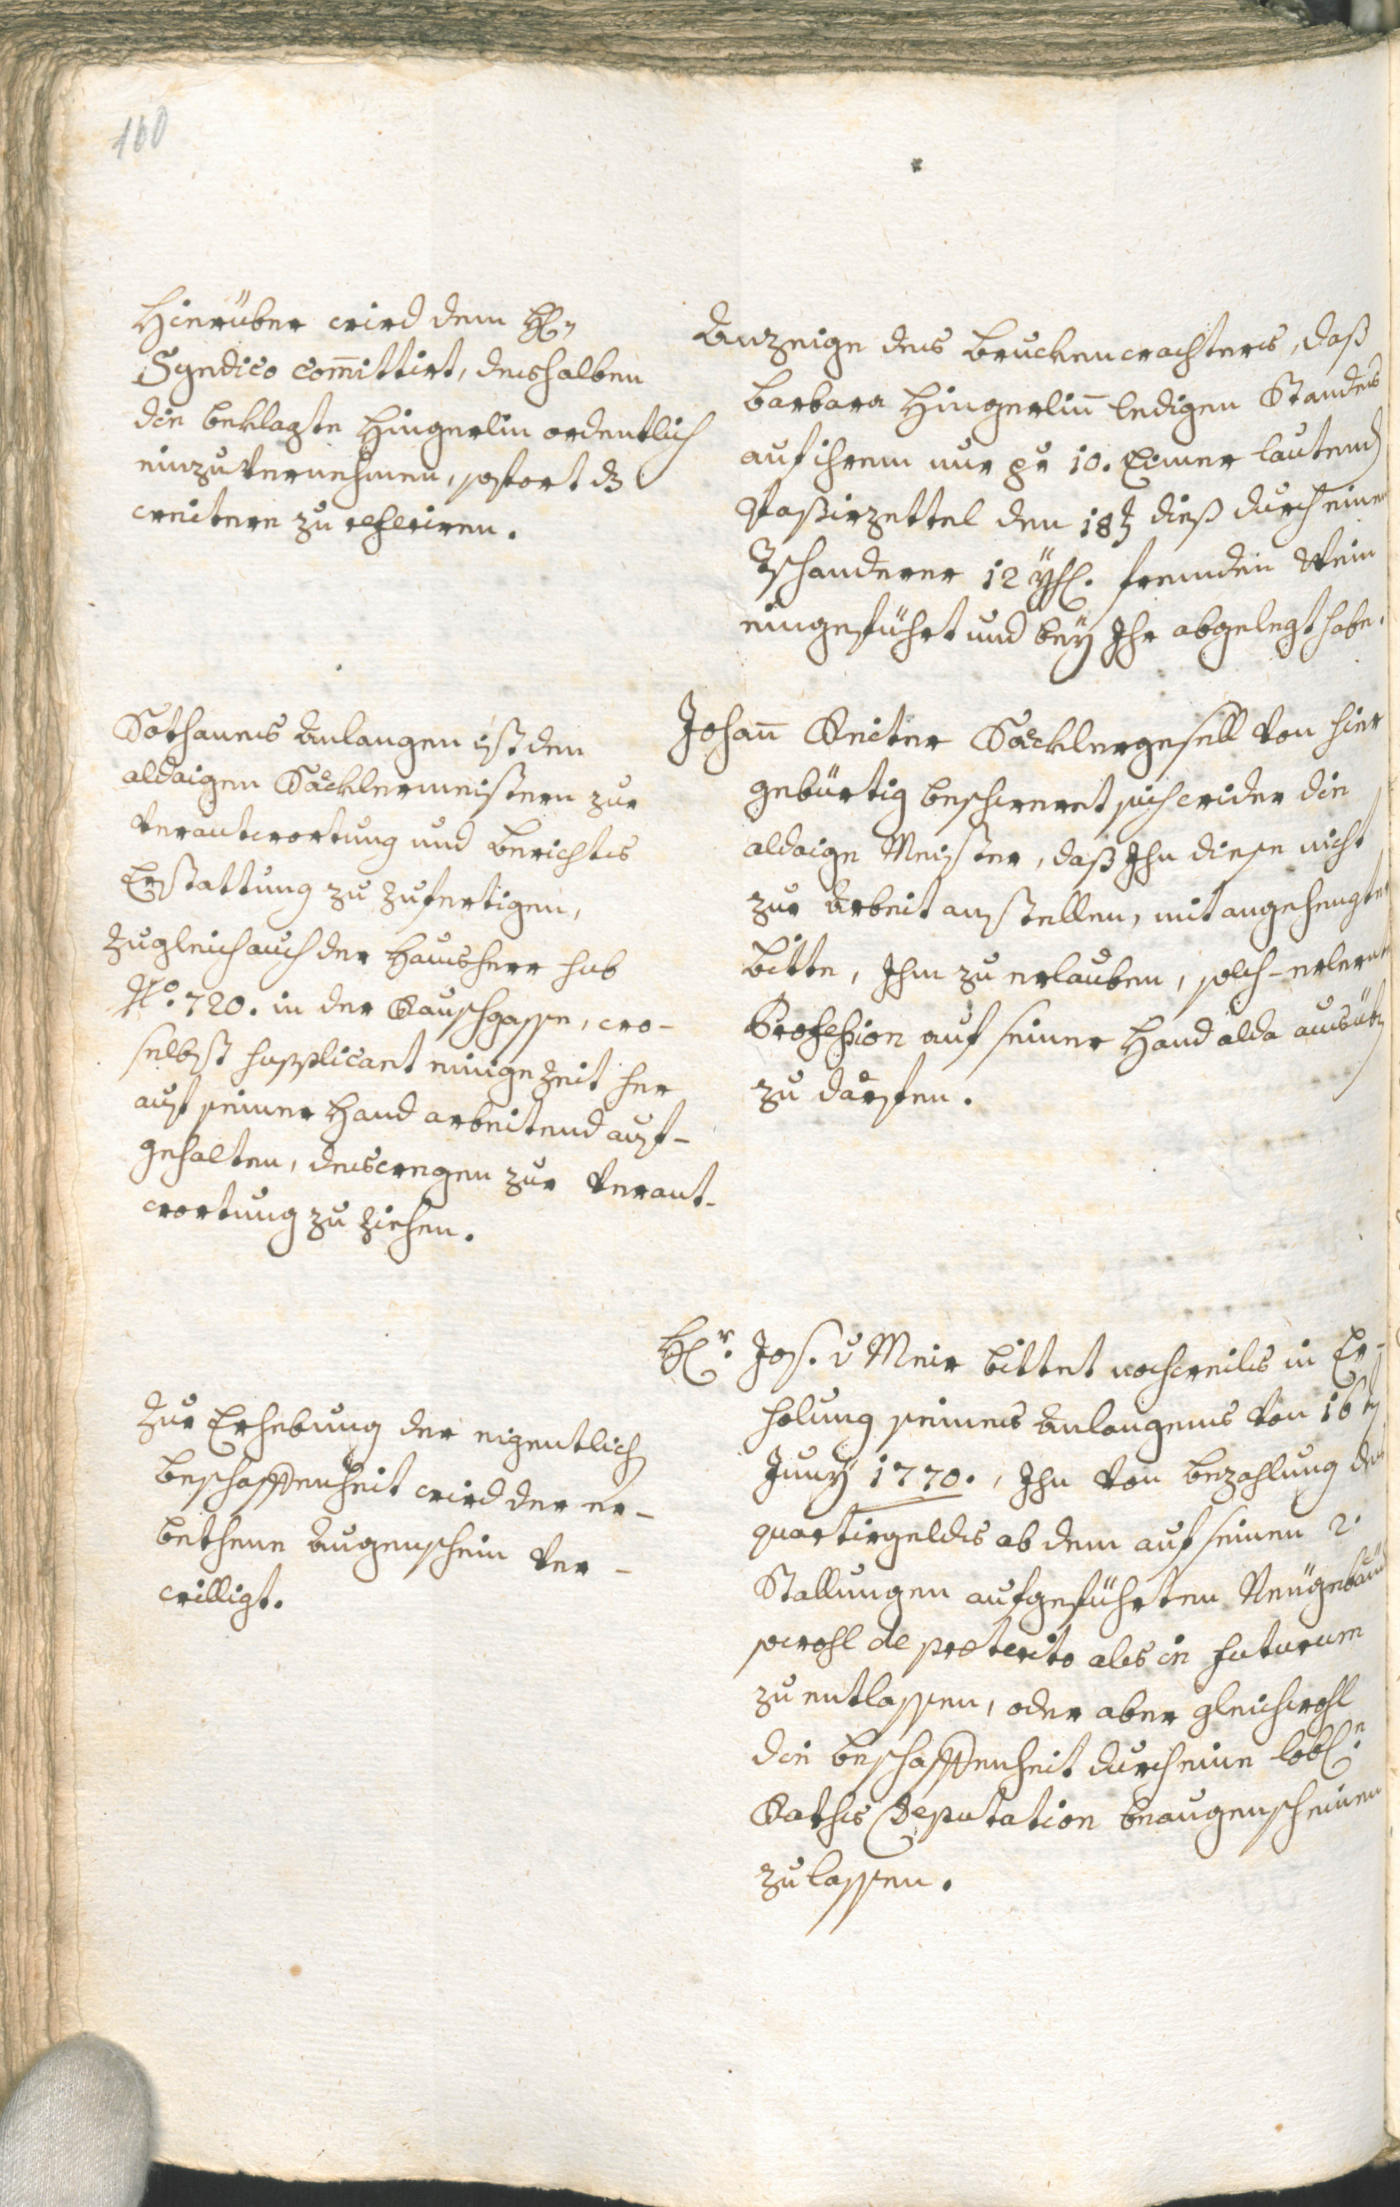 160
Hierüber wird dem H:
Syndico com̅ittirt, deshalben
die beklagte Hingerlin ordentlich
einzuvernehmen, sofort
weitere zu referiren.
Anzeige des Bruckenwachters, daß
Barbara Hingerlin̅ ledigen Standes
auf ihrem nur pr 10. Eimer lautend
Passirzettel den 18t dieß durch einen
Tschanderer 12 Yh. fremden Wein
eingeführt und bey Ihr abgelegt habe.
Sothanes Anlangen ist den
aldaigen Säcklermeistern zur
Verantwortung und Berichts
Erstattung zu zufertigen,
zugleich auch der Hausherr sub
No. 720. in der Rauschgasse, wo-
selbst supplicant einige Zeit her
auf seiner Hand arbeitend auf-
gehalten, deswegen zur Verant-
wortung zu ziehen.
Johan̅ Reiter Säcklergesell von hier
gebürtig beschweret sich wider die
aldaige Meister, daß Ihn diese nicht
zur Arbeit anstellen, mit angehengter
Bitte, Ihm zu erlauben, solch-erlernte
Profession auf seiner Hand alda ausüb
zu därfen.
Zur Erhebung der eigentlich
Beschaffenheit wird der er-
bethene Augenschein ver-
willigt.
Hr. Jos. v Meir bittet nochweils in Er-
holung seines Anlangens von 16t
Juny 1770., Ihn von Bezahlung des
quartirgeldes ab dem auf seinen 2.
Stallungen aufgeführten Neügebäud
sowohl de præterito als in futurum
zu entlassen, oder aber gleichwohl
die Beschaffenheit durch eine löbl:e
Raths Deputation beaugenscheinen
zu lassen.